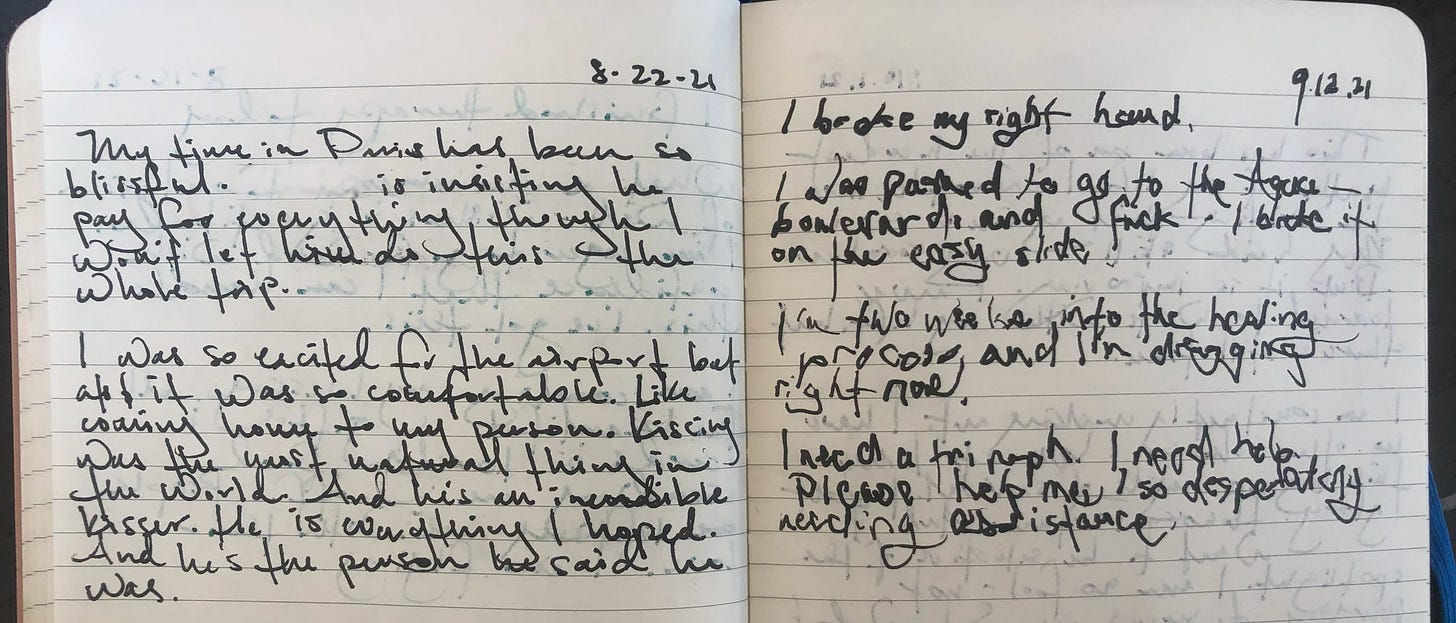 8-22-21
My time in Paris has been so
blissful. is insisting he
pay for everything though I
won't let him do this the
whole trip.
I was so excited for the airport but
after it was so comfortable. Like
coming home to my person. Kissing
was the most natural thing in
the world. And his an incredible
kisser. He is everything I hoped.
And he's the person he said he
was.
9.12.21
I broke my right hand.
I was to go to the
and fuck. I broke it
on the easy slide.
I'm two weeks into the healing
process, and I'm dragging
right now.
I need a triumph. I need help.
Please help me, I so desperately
needing assistance.